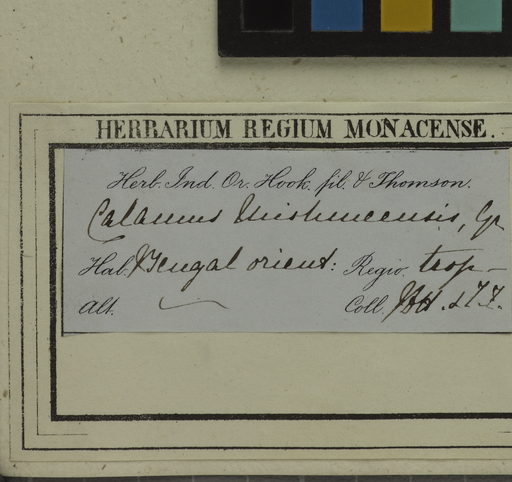 HERBARIUM REGIUM MONACENSE.
Herb. Ind. Or. Hook. fil. & Thomson.
Calamus Mishmeensis, Gr
Hab. Bengal orient: Regio. trop-
Alt. Coll.